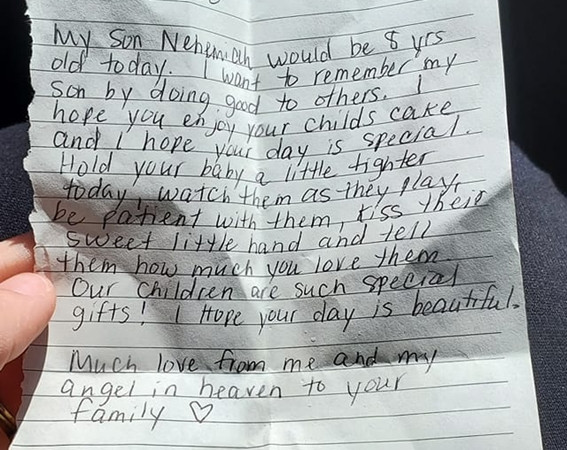 My Son Nehemiah would be 8 yrs
old today. I want to remember my
son by doing good to others. I
hope you enjoy your childs cake
and I hope your day is special.
Hold your baby a little tighter
today, watch them as they play,
be patient with them, kiss their
sweet little hand and tell
them how much you love them.
Our children are such special
gifts! I Hope your day is beautiful.
Much love from me and my
angel in heaven to your
family ♡